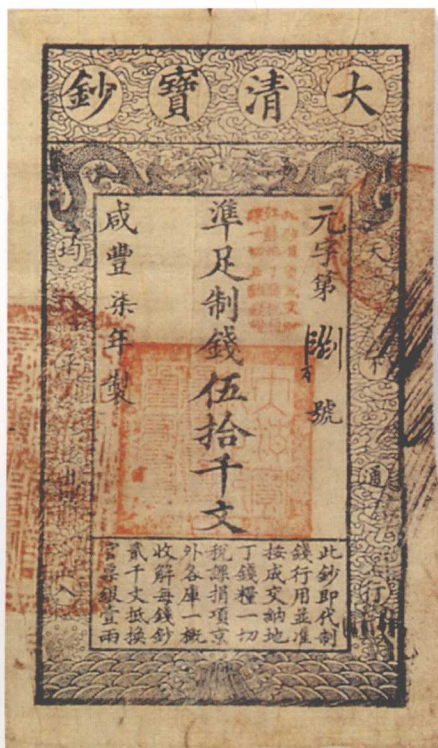 大清寶鈔
天下通行
元字第號
準足制錢伍拾千文
咸豐柒年製
均平出入
此鈔即代制
錢行用並准
按成交納地
丁錢糧一切
稅課捐項京
外各庫一概
收解每錢鈔
貳千文抵換
官票銀壹兩